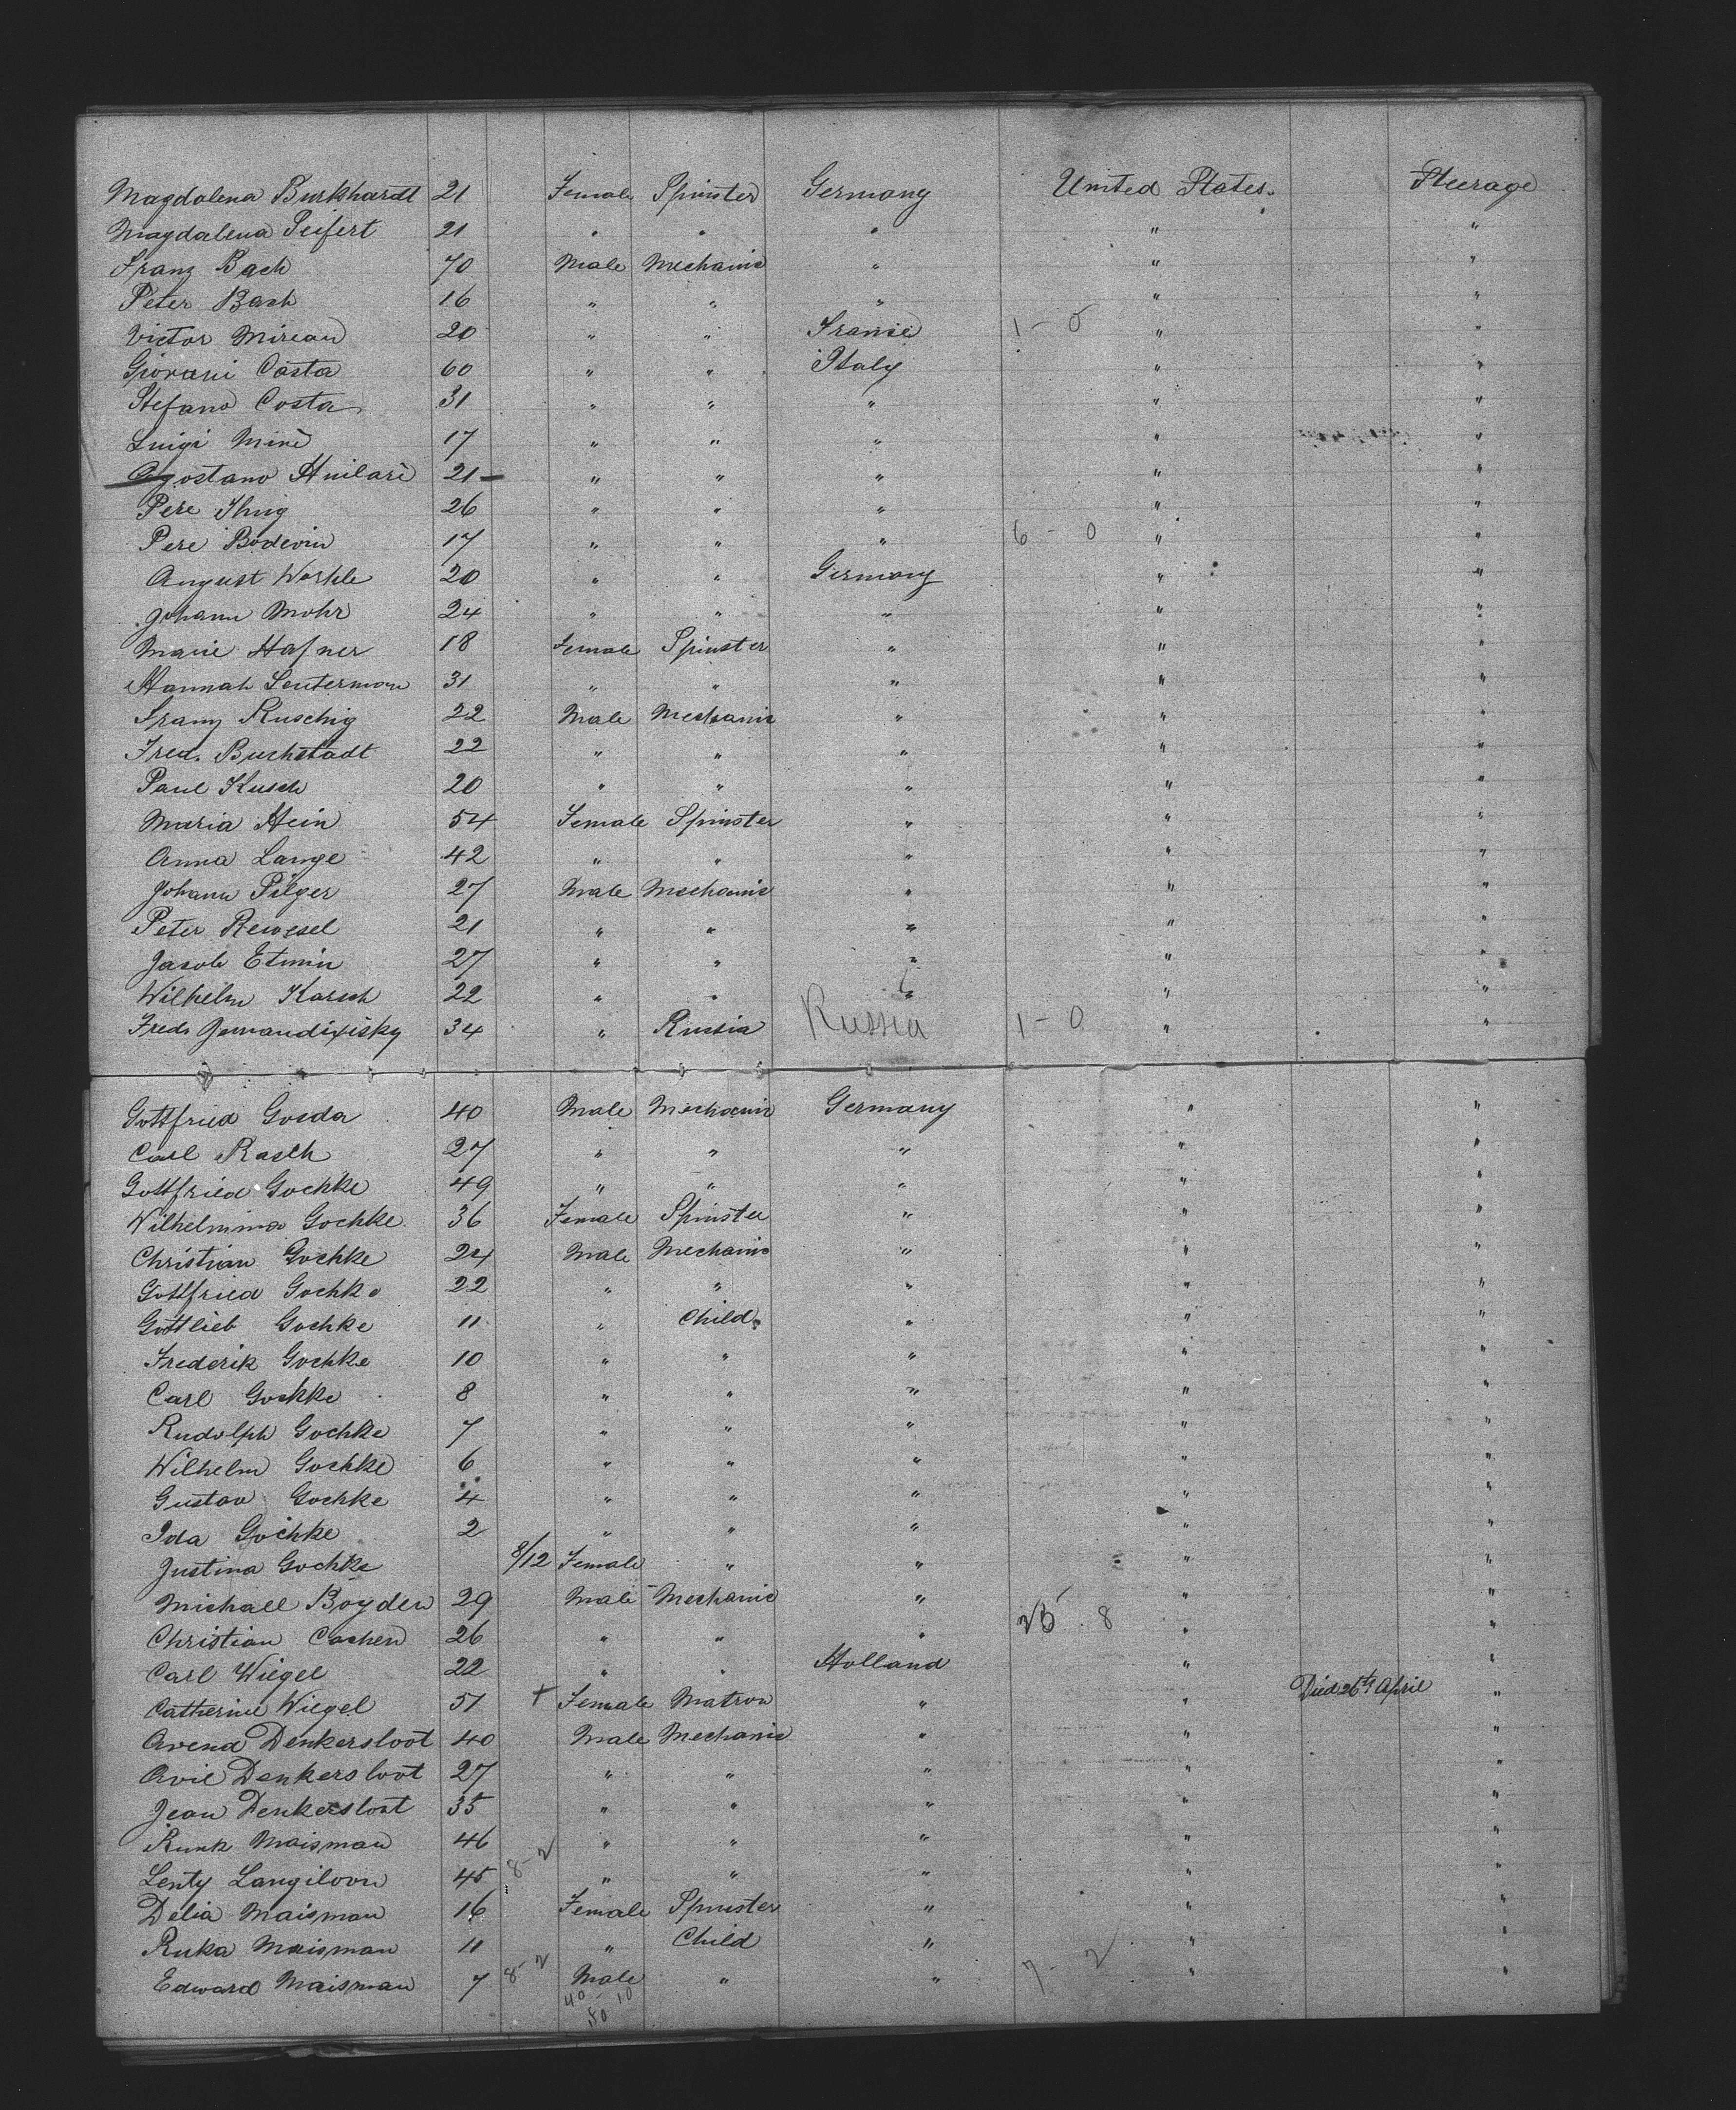 Magdalena Burkhardt 21 Female Spinster Germany United States. Steerage
Magdalena Seifert 21 " " " " "
Franz Bach 70 Male Mechanic " " "
Peter Bach 16 " " " " "
Victor Mireau 20 " " France 1 - 0 " "
Giovani Costa 60 " " Italy " "
Stefano Costa 31 " " " " "
Luigi Minè 17 " " " " "
Agostano 21 - " " " " "
Pere 26 " " " " "
Pere Bodevin 17 " " " 6 - 0 " "
August Workle 20 " " Germany " "
Johann Mohr 24 " " " " "
Marie Hafner 18 Female Spinster " " "
Hannah Senterman 31 " " " " "
Franz Ruschig 22 Male Mechanic " " "
Fred. Buchstadt 22 " " " " "
Paul Kusch 20 " " " " "
Maria Hein 54 Female Spinster " " "
Anna Lange 42 " " " " "
Johann Pilger 27 Male Mechanic " " "
Peter Rewesel 21 " " " " "
Jacob Etmin 27 " " " " "
Wilhelm Karsch 22 " " " " "
Fred. 34 " Russia Russia 1 - 0 " "
Gottfried Gosda 40 Male Mechanic Germany " "
Carl Rasch 27 " " " " "
Gottfried Gochke 49 " " " " "
Wilhelmina Gochke 36 Female Spinster " " "
Christian Gochke 24 Male Mechanic " " "
Gottfried Gochke 22 " " " " "
Gottlieb Gochke 11 " Child " " "
Frederik Gochke 10 " " " " "
Carl Gochke 8 " " " " "
Rudolph Gochke 7 " " " " "
Wilhelm Gochke 6 " " " " "
Gustav Gochke 4 " " " " "
Ida Gochke 2 " " " " "
Justina Gochke 8/12 Female " " " "
Michael Boyden 29 Male Mechanic " " "
Christian Cochen 26 " " " 8 " "
Carl Wiegel 22 " " Holland " "
Catherine Wiegel 51 + Female Matron " " Died 26th April "
Arend Denkersloot 40 Male Mechanic " " "
Arie Denkersloot 27 " " " " "
Jean Denkersloot 35 " " " " "
Runk Maisman 46 " " " " "
Lenty Langiloon 45 8-2 " " " " "
Delia Maisman 16 Female Spinster " " "
Ruka Maisman 11 " Child " " "
Edward Maisman 7 8-2 Male " " 7 - 2 " "
40 - 10
50